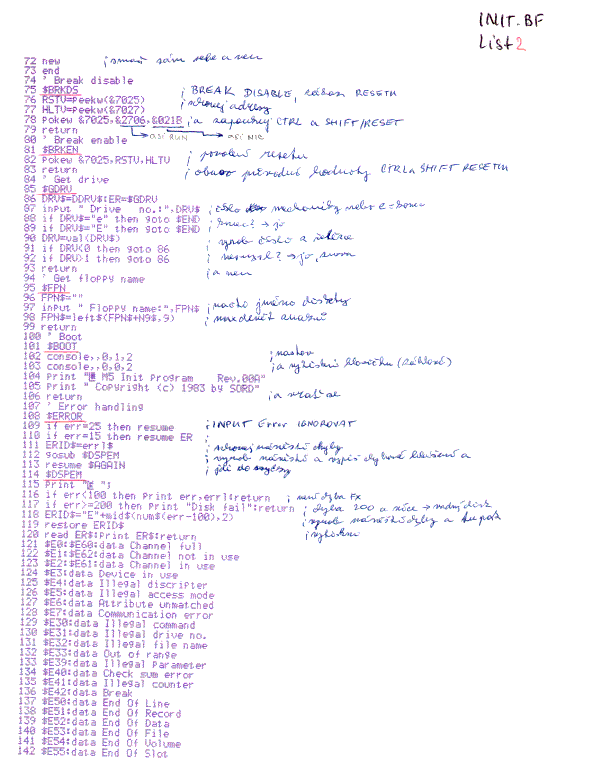 INIT.BF
List 2
72 new ; smaž sám sebe a ven
73 end
74 ' Break disable
75 $BRKDS ; BREAK DISABLE, zákaz RESETU
76 RSTV=Peekw(&7025) ; schovej adresy
77 HLTV=Peekw(&7027)
78 Pokew &7025,&2706,&021B ; a zapouzdři CTRL a SHIFT/RESET
79 return asi RUN asi NIC
80 ' Break enable
81 $BRKEN ; povolení resetu
82 Pokew &7025,RSTV,HLTV ; obnov původní hodnoty CTRL a SHIFT RESETU
83 return
84 ' Get drive
85 $GDRV
86 DRV$=DDRV$:ER=$GDRV
87 inPut " Drive no.:",DRV$ ; číslo mechaniky nebo e=konec
88 if DRV$="e" then goto $END ; konec? → jo
89 if DRV$="E" then goto $END
90 DRV=val(DRV$) ; vyrob číslo z řetězce
91 if DRV<0 then goto 86 ; nesmysl? → jo, znova
92 if DRV>1 then goto 86
93 return ; a ven
94 ' Get floppy name
95 $FPN
96 FPN$=""
97 inPut " Floppy name:",FPN$ ; načti jméno diskety
98 FPN$=left$(FPN$+N9$,9) ; max devět znaků
99 return
100 ' Boot
101 $BOOT
102 console,,0,1,2 ; nastav
103 console,,0,0,2 ; a vytiskni hlavičku (záhlaví)
104 Print " M5 Init Program Rev.00A"
105 Print " Copyright (c) 1983 by SORD"
106 return ; a vrať se
107 ' Error handling
108 $ERROR
109 if err=25 then resume ; INPUT Error IGNOROVAT
110 if err=15 then resume ER
111 ERID$=err1$ ; schovej návěští chyby
112 gosub $DSPEM ; vyrob návěští a vypiš chybové hlášení a
113 resume $AGAIN ; jdi do smyčky
114 $DSPEM
115 Print " ";
116 if err<100 then Print err,err1:return ; není chyba FX
117 if err>=200 then Print "Disk fail":return ; chyba 200 a více → vadný disk
118 ERID$="E"+mid$(num$(err-100),2) ; vyrob návěští chyby a text
119 restore ERID$
120 read ER$:Print ER$:return ; vytiskni
121 $E0:$E60:data Channel full
122 $E1:$E62:data Channel not in use
123 $E2:$E61:data Channel in use
124 $E3:data Device in use
125 $E4:data Illegal discripter
126 $E5:data Illegal access mode
127 $E6:data Attribute unmatched
128 $E7:data Communication error
129 $E30:data Illegal command
130 $E31:data Illegal drive no.
131 $E32:data Illegal file name
132 $E33:data Out of range
133 $E39:data Illegal Parameter
134 $E40:data Check sum error
135 $E41:data Illegal counter
136 $E42:data Break
137 $E50:data End Of Line
138 $E51:data End Of Record
139 $E52:data End Of Data
140 $E53:data End Of File
141 $E54:data End Of Volume
142 $E55:data End Of Slot